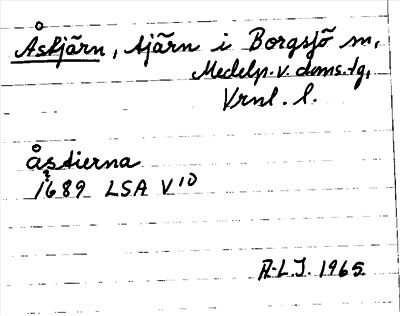 Åstjärn, tjärn i Borgsjö sn,
Medelp. v. doms.tg,
Vrnl. l.
åstierna
1689 LSA V 10
A-L.J. 1965